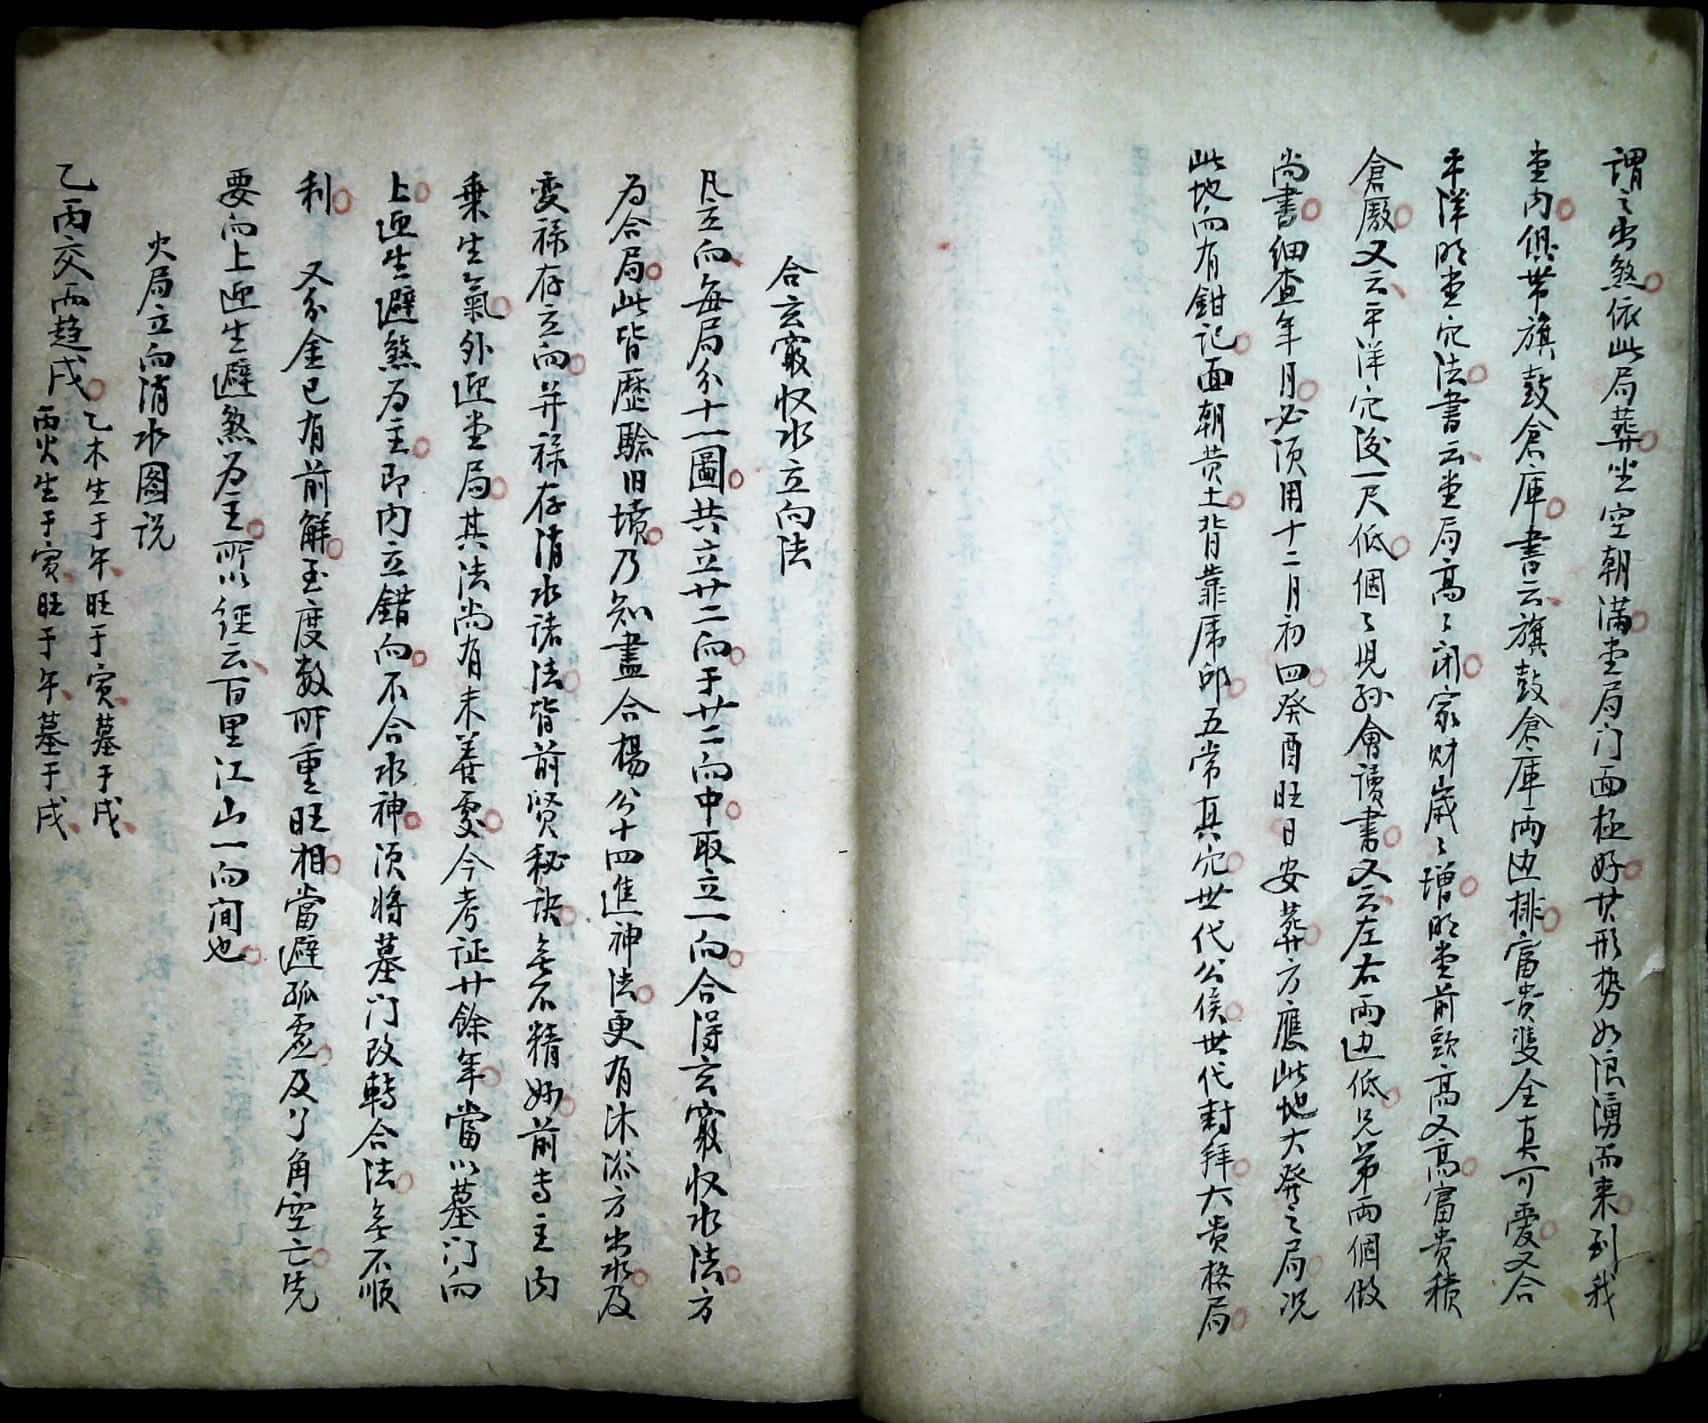 谓之出煞依此局葬坐空朝满堂局门面极好廿形势如浪湧而来到我
堂内俱带旗鼓倉庫書云旗鼓倉庫两边排富贵双全真可愛又合
平洋明堂穴法書云堂局高高闭家财歲歲增明堂前頭高又高富贵積
倉廒又云平洋穴後一尺低個個児孙會讀書又云左右两边低兄弟两個做
尚書细查年月必须用十二月初四癸酉旺日安葬方應此地大癸之局况
此地向有鉗记面朝黄土背靠馬邱五常真穴世代公侯世代封拜大贵格局
合玄窽收水立向法
凡立向每局分十一圖共立廿二向于廿二向中取立一向合得玄窽收水法方
为合局此皆歷驗旧墳乃知盡合楊公十四進神法更有沐浴方出水及
变禄存立向并禄存消水诸法皆前贤秘诀無不精妙前专主内
乘生氣外迎堂局其法尚有未善處今考证廿餘年當以墓门向
上迎生避煞为主即内立錯向不合水神须将墓门改轉合法無不順
利 又分金已有前解至度数所重旺相當避孤虚及丫角空亡先
要向上迎生避煞为主所以经云百里江山一向间也
火局立向消水图说
乙丙交而趋戌 乙木生于午旺于寅墓于戌
丙火生于寅旺于午墓于戌